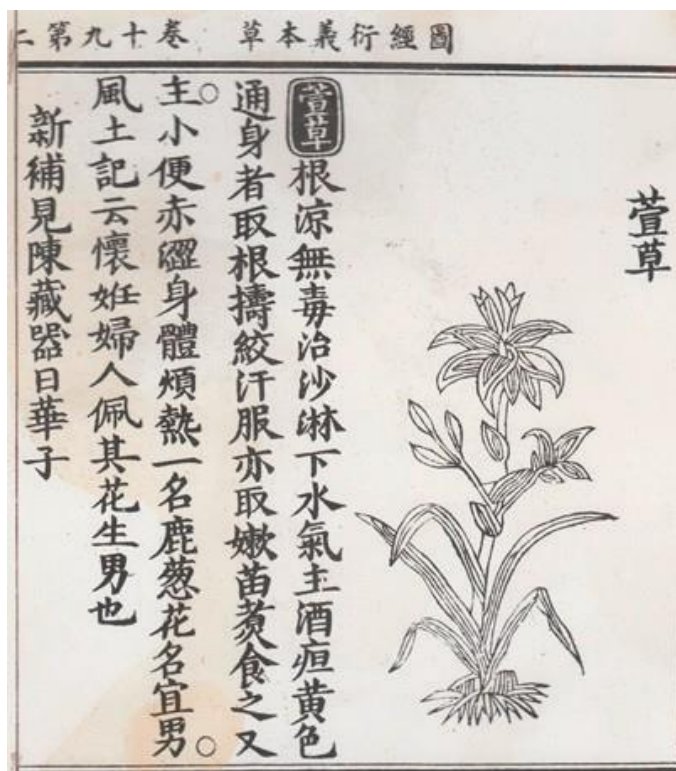 圖經衍義本草 卷十九第二
萱草
萱草根涼無毒治沙淋下水氣主酒疸黃色
通身者取根擣絞汁服亦取嫰苗煑食之又
○主小便赤澀身體煩熱一名鹿葱花名宜男○
風土記云懷姙婦人佩其花生男也
新補見陳藏器日華子